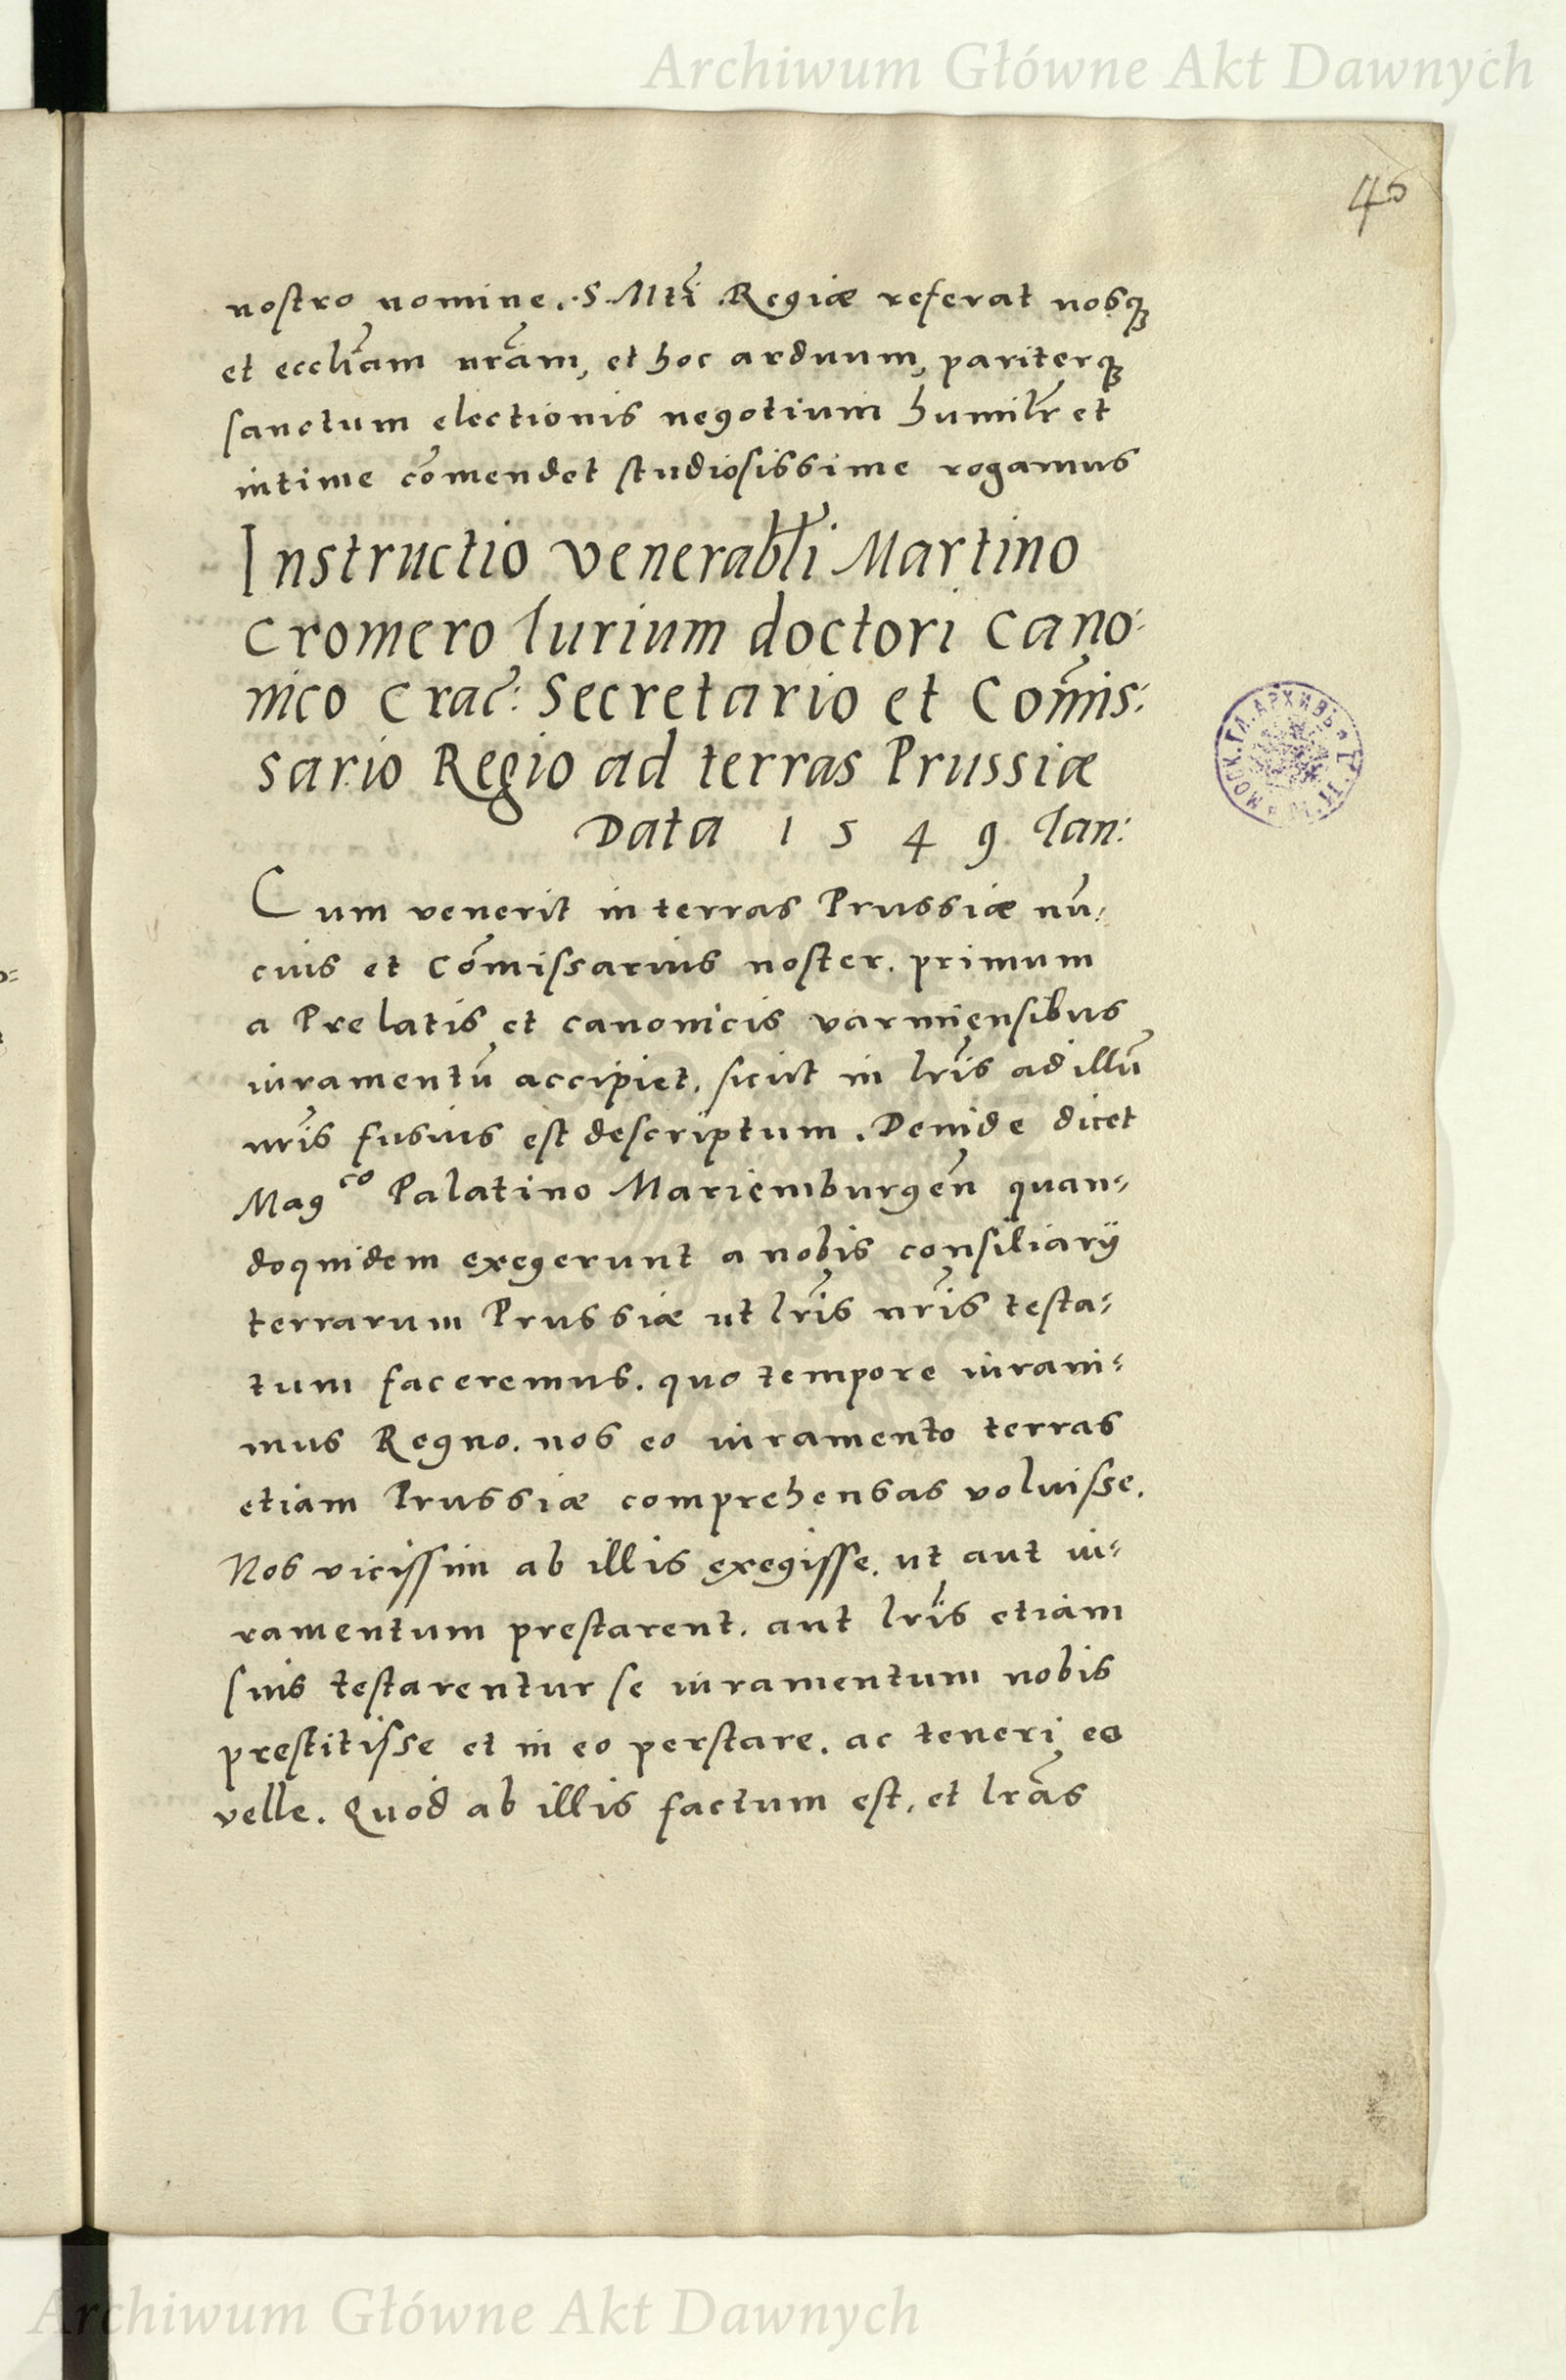 Archiwum Główne Akt Dawnych
46
nostro nomine. S. Mti Regiæ referat nosq3
et eccliam nram, et hoc arduum, pariterq3
sanctum electionis negotium humilr et
intime cōmendet studiosissime rogamus
Instructio venerabli Martino
Cromero Iurium doctori Cano:
nico Crac: Secretario et Com̄is:
sario Regio ad terras Prussiæ
Data 1549 Ian:
Cum venerit in terras Prussiæ nū:
cius et Cōmissarius noster. primum
a Prelatis et canonicis varmiensibus
iuramentū accipiet. sicut in lris ad illū
nris fusius est descriptum. Deinde dicet
Magco Palatino Mariemburgen̄ quan=
doquidem exegerunt a nobis consiliarÿ
terrarum Prussiæ ut lris nris testa=
tum faceremus. quo tempore iurani=
mus Regno. nos eo iuramento terras
etiam Prussiæ comprehensas voluisse.
Nos vicissim ab illis exegisse. ut aut iu=
ramentum prestarent. aut lris etiam
suis testarentur se iuramentum nobis
prestitisse et in eo perstare. ac teneri eo
velle. Quod ab illis factum est. et lras
МОСК. ГЛ. АРХИВЪ
Archiwum Główne Akt Dawnych